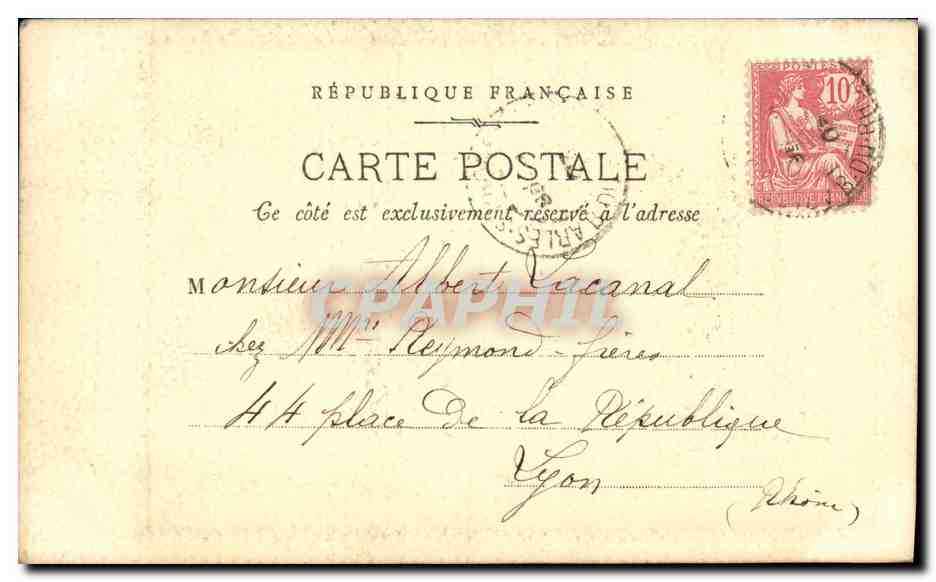 POSTES
10
RÉPUBLIQUE FRANÇAISE
RÉPUBLIQUE FRANÇAISE
CARTE POSTALE
Ce côté est exclusivement réservé à l'adresse
ARLES-S
Monsieur Albert Lacanal
CPAPHIL
chez MMrs Reymond frères
44 place de la République
Lyon
(Rhône)